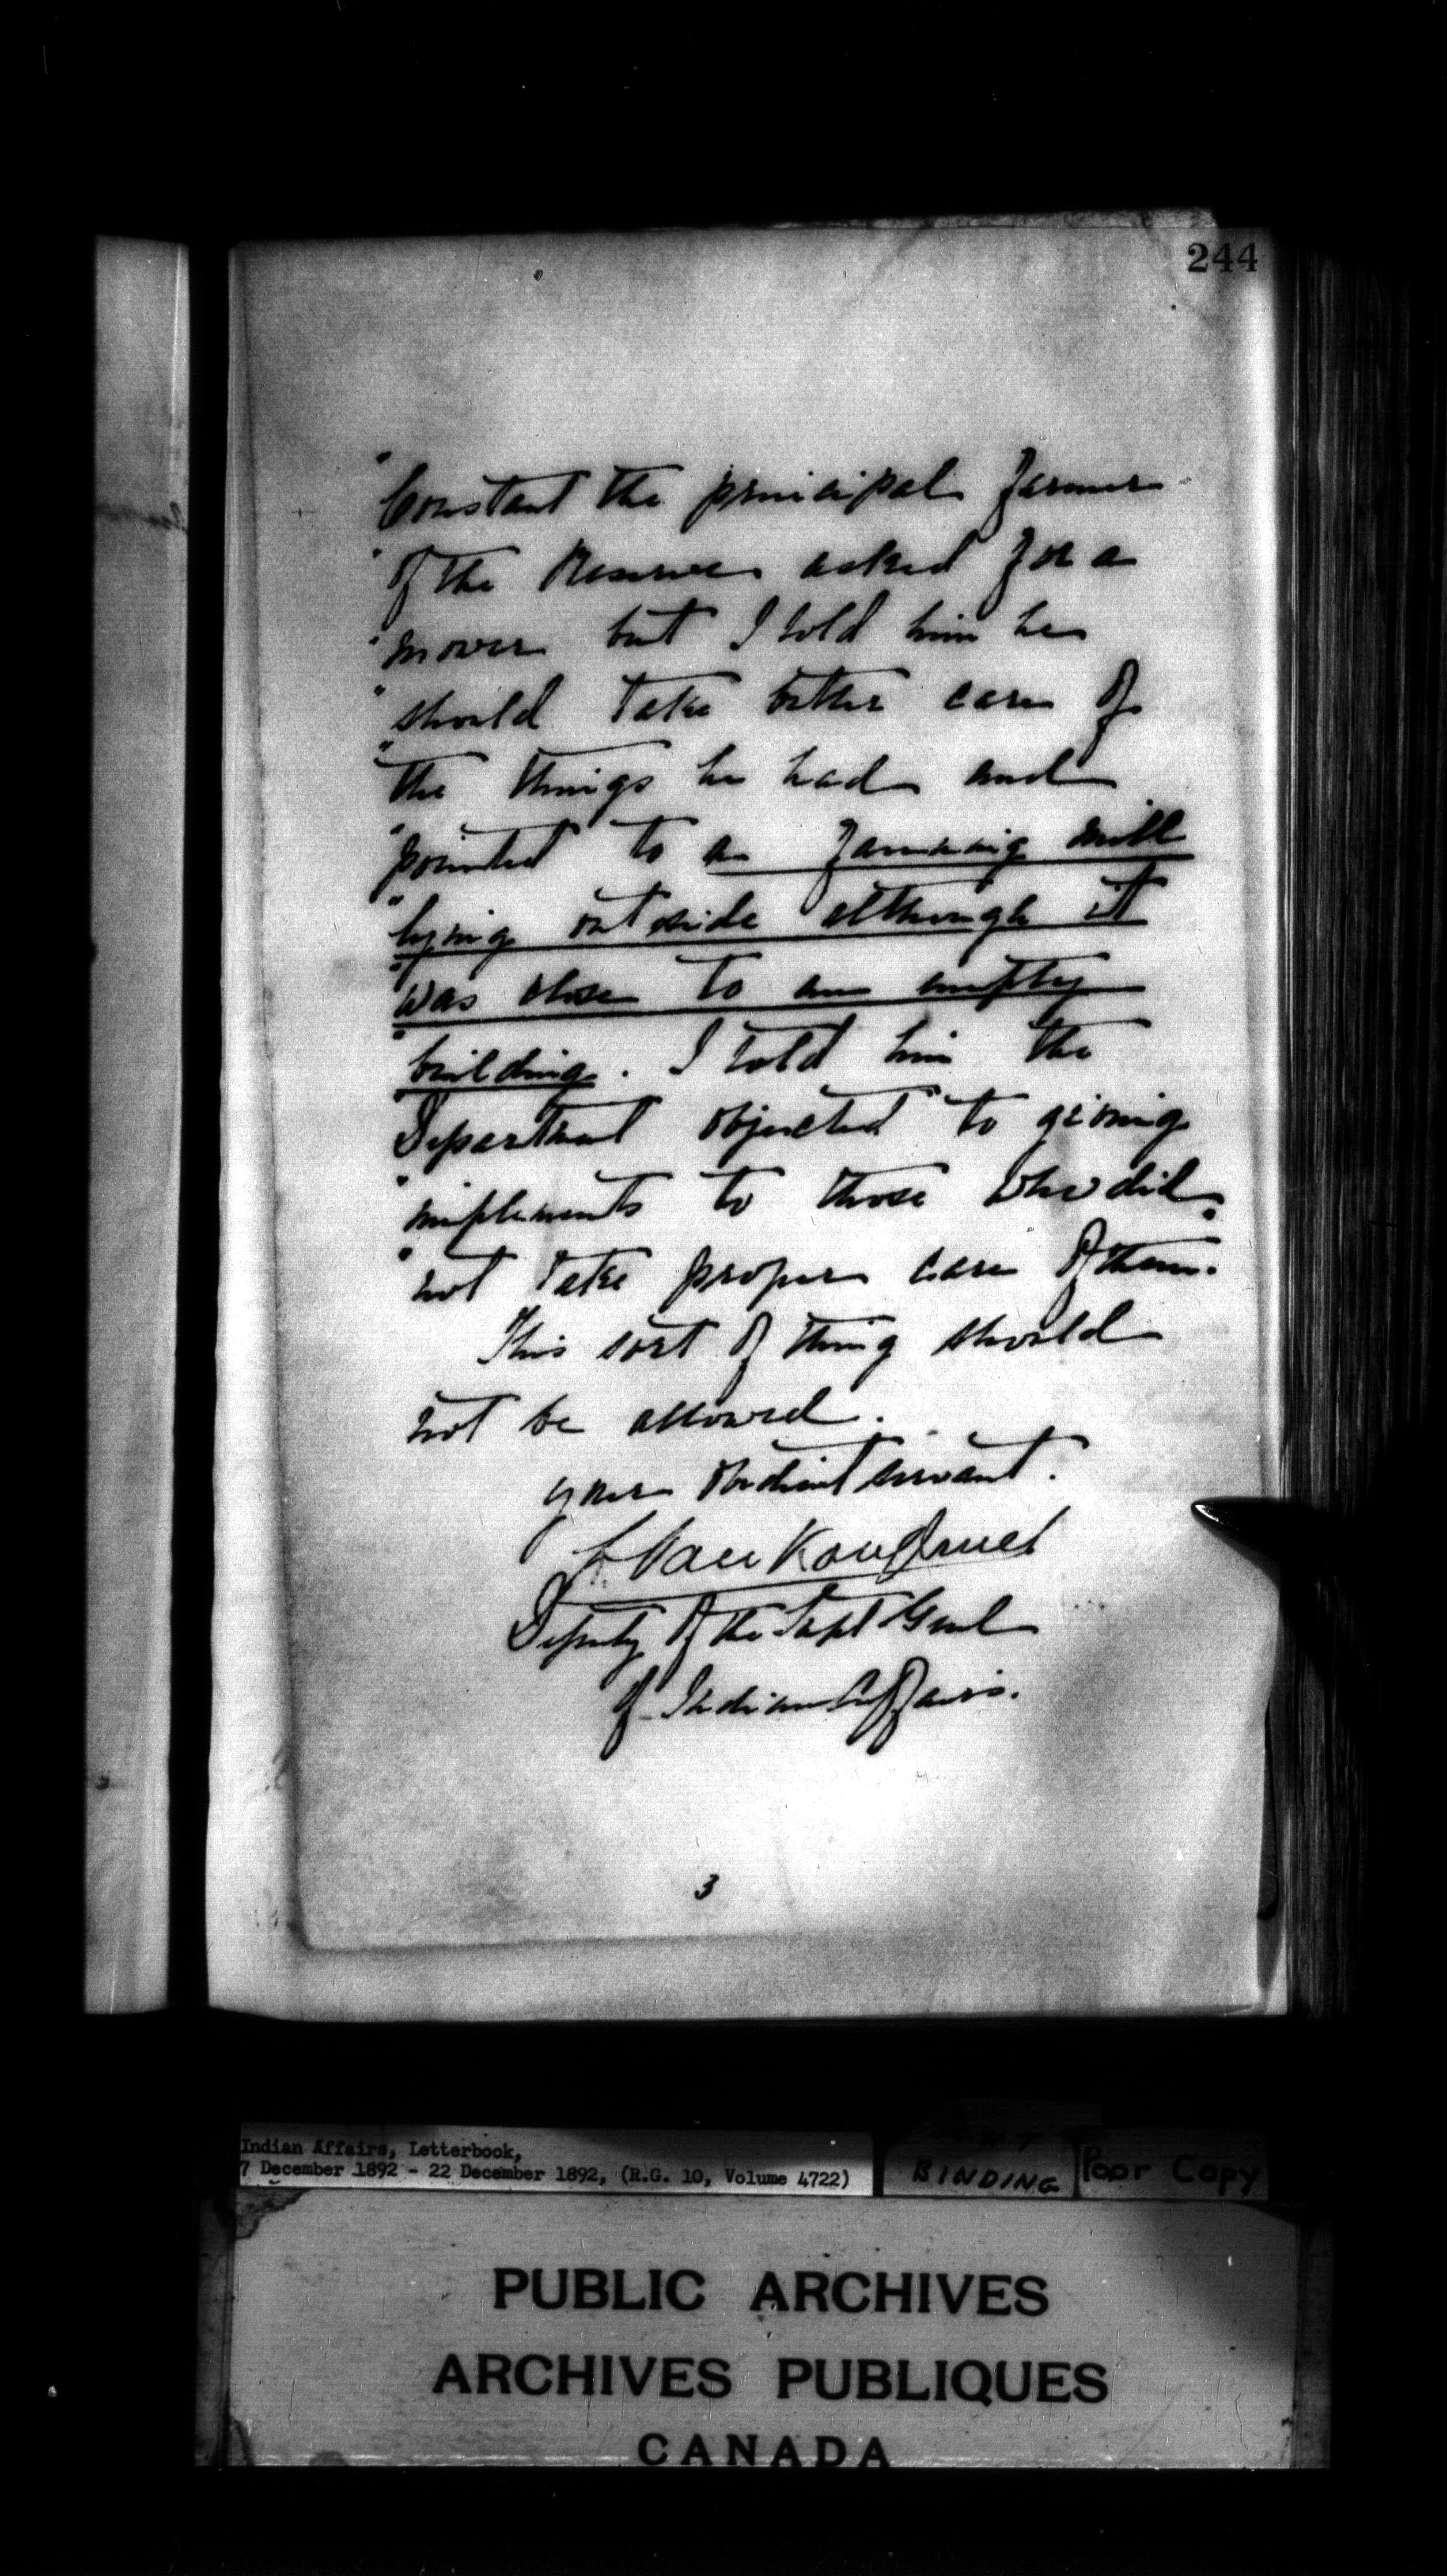 244
"Constant the principal farmer
"of the Reserve asked for a
"mower but I told him he
"should take better care of
"the things he had and
"pointed to a fanning mill
"lying outside although it
"was close to an empty
"building. I told him the
"Department objected to giving
"implements to those who did
"not take proper care of them."
This sort of thing should
not be allowed.
your obedient servant.
L Vankoughnet
Deputy of the Supt Genl
of Indian Affairs.
3
Indian Affairs, Letterbook,
7 December 1892 - 22 December 1892, (R.G. 10, Volume 4722)
BINDING
Poor Copy
PUBLIC ARCHIVES
ARCHIVES PUBLIQUES
CANADA